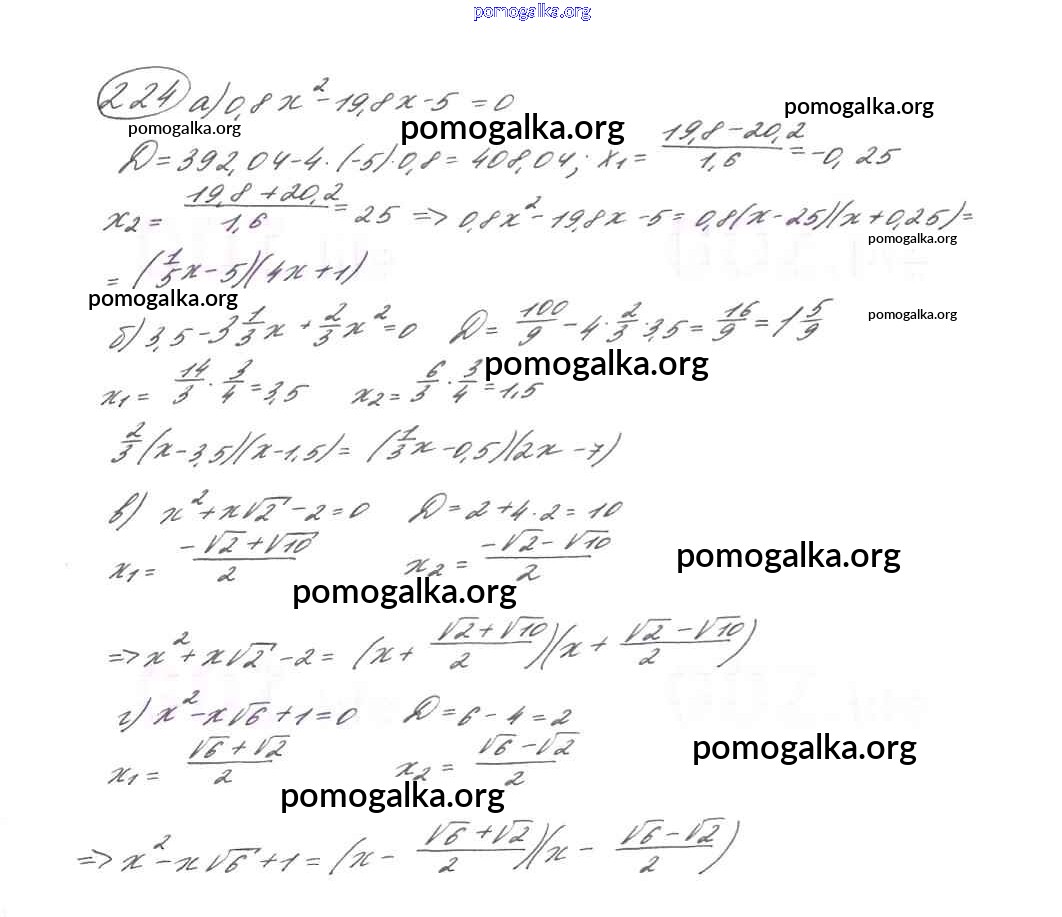 pomogalka.org
224 а) 0,8x² - 19,8x - 5 = 0
pomogalka.org pomogalka.org pomogalka.org
D = 392,04 - 4·(-5)·0,8 = 408,04; x₁ = (19,8 - 20,2)/1,6 = -0,25
x₂ = (19,8 + 20,2)/1,6 = 25 => 0,8x² - 19,8x - 5 = 0,8(x - 25)(x + 0,25) =
pomogalka.org
= (1/5x - 5)(4x + 1)
pomogalka.org pomogalka.org
б) 3,5 - 3 1/3x + 2/3x² = 0 D = 100/9 - 4·2/3·3,5 = 16/9 = 1 5/9
pomogalka.org
x₁ = 14/3 · 3/4 = 3,5 x₂ = 6/3 · 3/4 = 1,5
2/3(x - 3,5)(x - 1,5) = (1/3x - 0,5)(2x - 7)
в) x² + x√2 - 2 = 0 D = 2 + 4·2 = 10
x₁ = (-√2 + √10)/2 x₂ = (-√2 - √10)/2
pomogalka.org
pomogalka.org
=> x² + x√2 - 2 = (x + (√2 + √10)/2)(x + (√2 - √10)/2)
г) x² - x√6 + 1 = 0 D = 6 - 4 = 2
x₁ = (√6 + √2)/2 x₂ = (√6 - √2)/2
pomogalka.org
pomogalka.org
=> x² - x√6 + 1 = (x - (√6 + √2)/2)(x - (√6 - √2)/2)